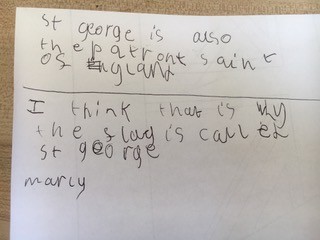 st george is also
the patront saint
of England
I think that is wy
the slag is called
st george
marcy